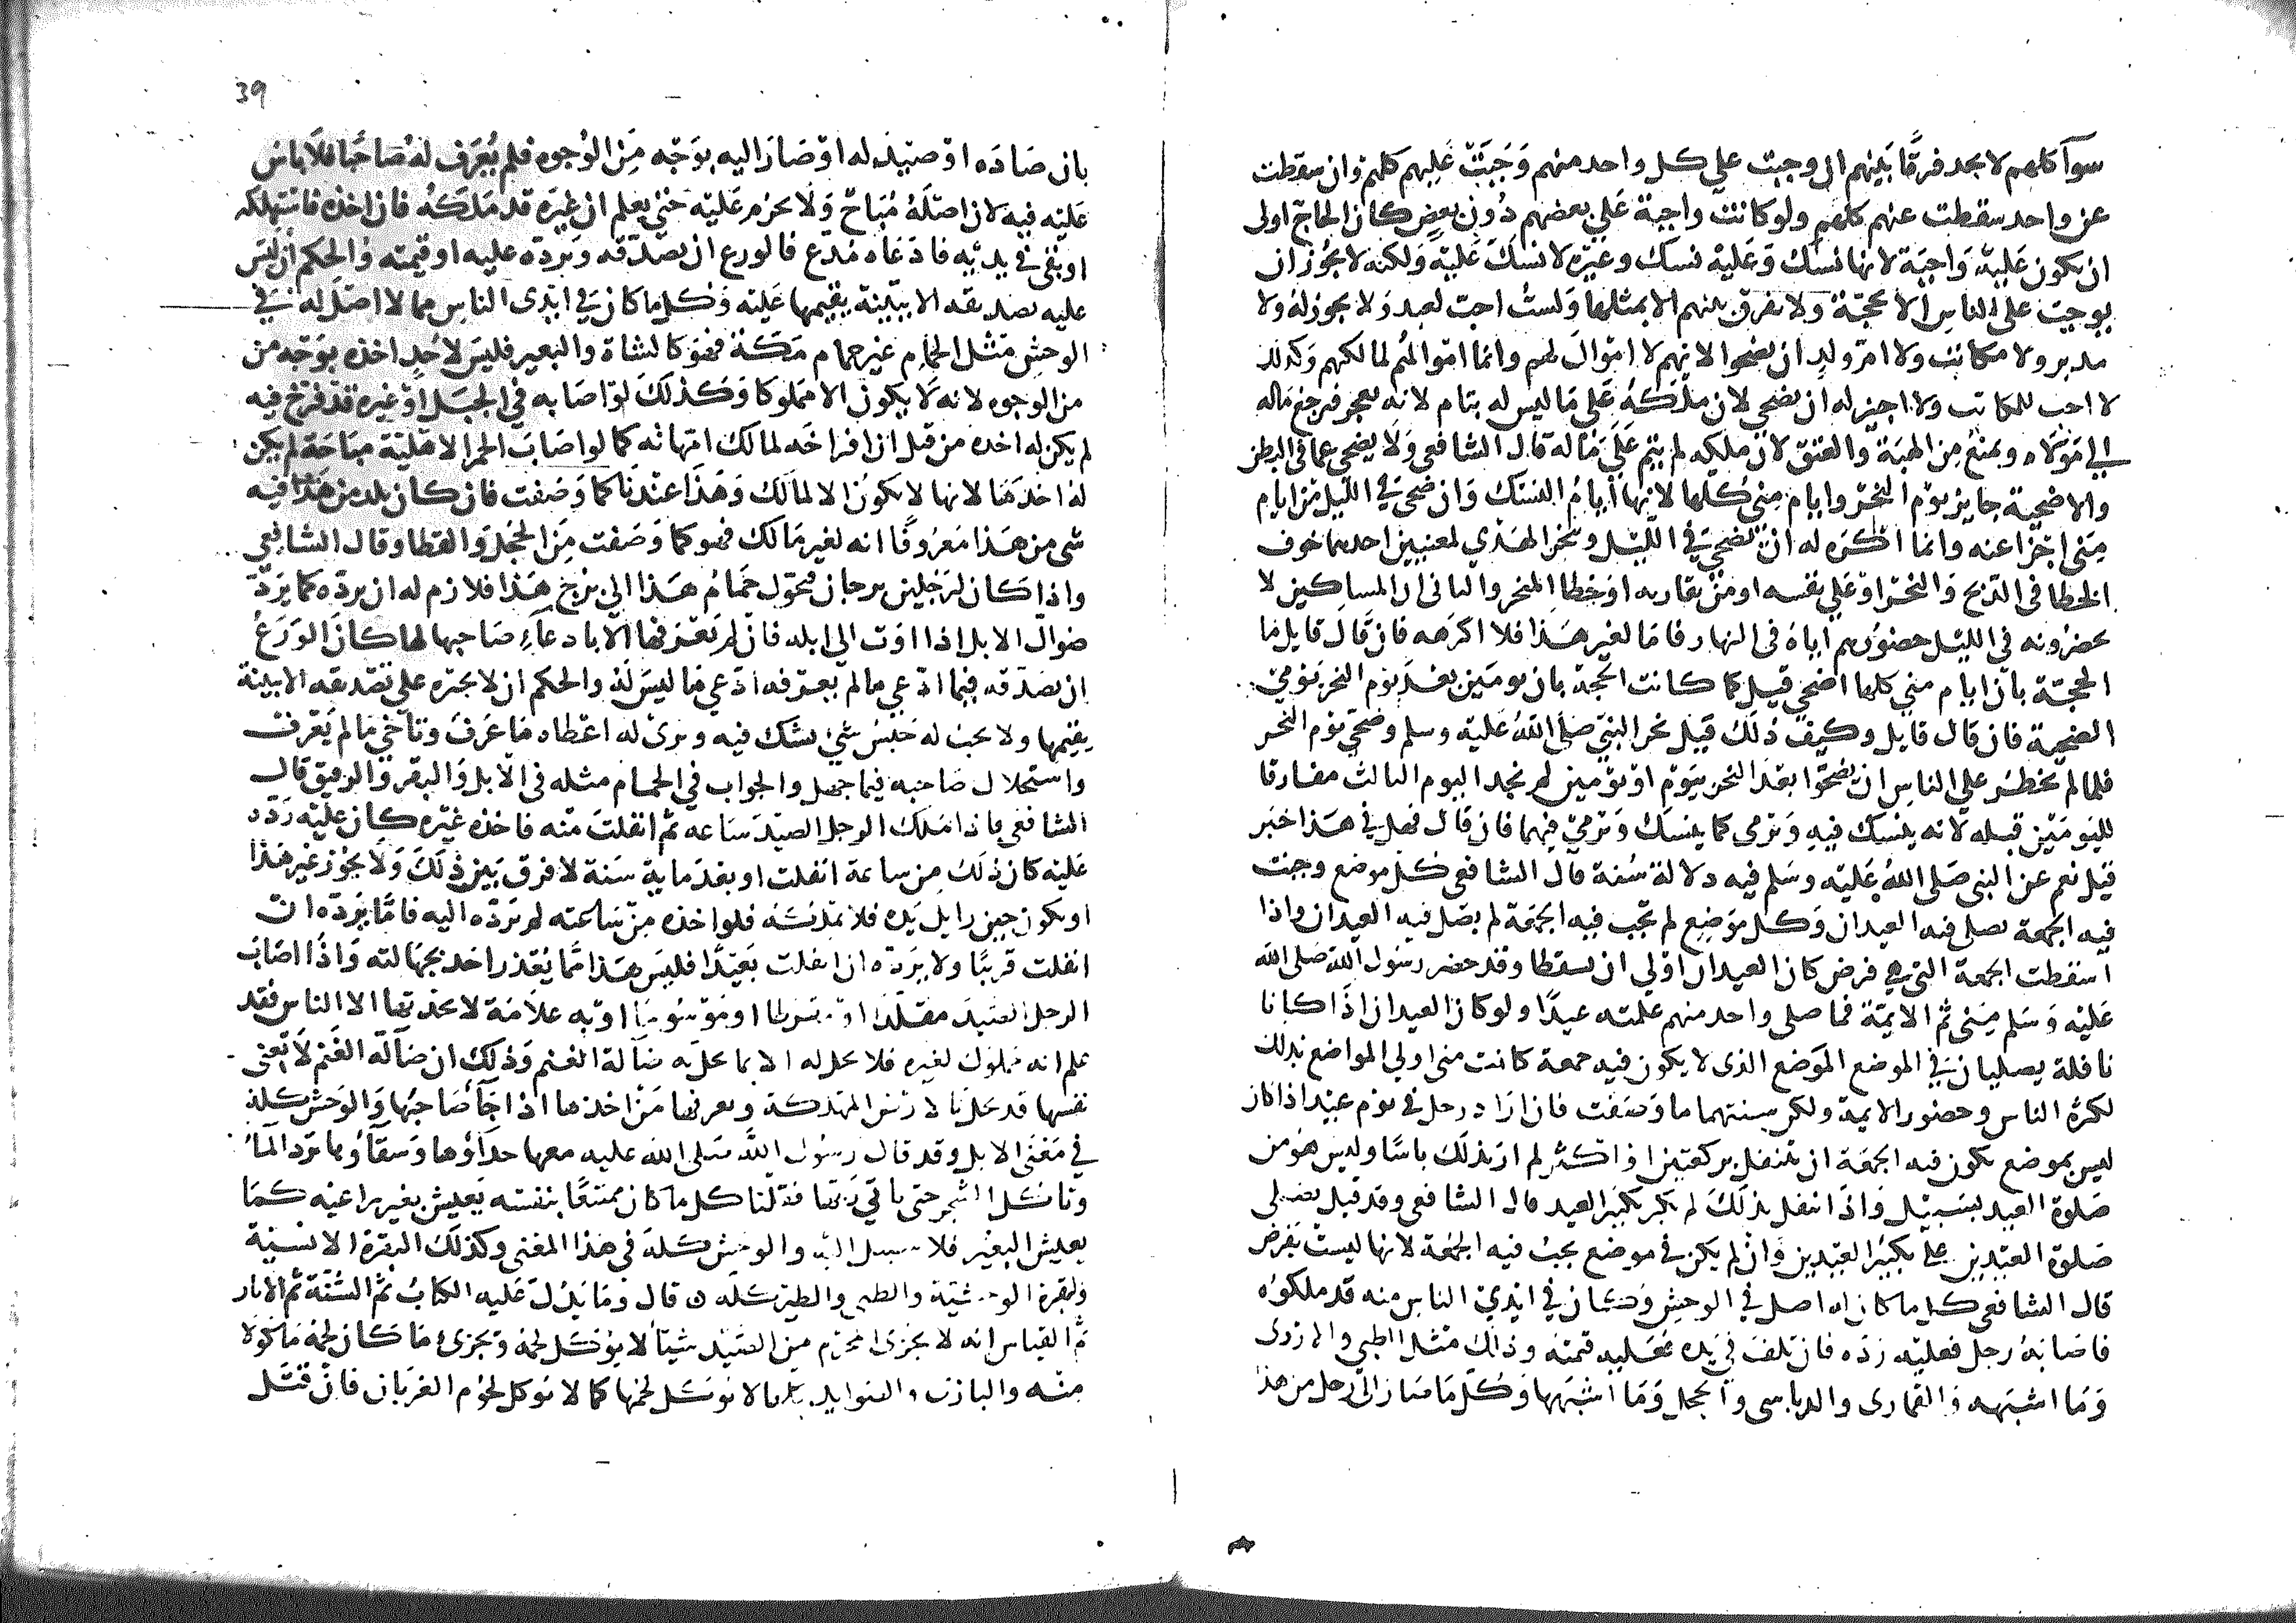 سوآ كلهم لا بجد فرقا بينهم ان وجبت علي كل واحد منهم وجبت عليهم كلهم وان سقطت
عن واحد سقطت عنهم كلهم ولو كانت واجبة علي بعضهم دون بعض كان الحاج اولى
ان يكون عليه واجبة لانها نسك وعليه نسك وغيره لا نسك عليه ولكنه لا يجوز ان
يوجب على الناس الا بحجة ولا يفرق بينهم الا بمثلها ولست احب لعبد ولا يجوز له ولا
مدبر ولا مكاتب ولا ام ولد ان يضحوا لانهم لا اموال لهم وانما اموالهم لمالكهم وكذلك
لا احب للمكاتب ولا اجيز له ان يضحي لان ملكه على ما ليس له بتام لانه يعجز فيرجع ماله
الي مولاه ويمنع من الهبة والعتق لان ملكه لم يتم على ماله قال الشافعي ولا يضحي عما في البطن
والاضحية جايز يوم النحر وايام منى كلها لانها ايام النسك وان ضحى في الليل من ايام
منى اجزا عنه وانما اكره له ان يضحي في الليل وينحر الهدي لمعنيين احدهما خوف
الخطا في الذبح والنحر او على نفسه او من يقاربه او خطا المنحر والثاني ان المساكين لا
يحضرونه في الليل حضورهم اياه في النهار فاما لغير هذا فلا اكرهه فان قال قايل ما
الحجة بان ايام مني كلها اضحي قيل كما كانت الحجة بان يومين بعد يوم النحر يومي
الضحية فان قال قايل وكيف ذلك قيل نحر النبي صلى الله عليه وسلم وضحي يوم النحر
فلما لم يحظر علي الناس ان يضحوا بعد النحر بيوم او يومين لم نجد اليوم الثالث مفارقا
لليومين قبله لانه ينسك فيه ويرمى كما ينسك ويرمي فيهما فان قال فهل في هذا خبر
قيل نعم عن النبي صلى الله عليه وسلم فيه دلالة سنة قال الشافعي كل موضع وجبت
فيه الجمعة يصلي فيه العيدان وكل موضع لم تجب فيه الجمعة لم يصل فيه العيدان واذا
اسقطت الجمعة التي هي فرض كان العيدان اولي ان يسقطا وقد حضر رسول الله صلى الله
عليه وسلم منى ثم الايمة فما صلى واحد منهم علمته عيدا ولو كان العيدان اذا كانا
نافلة يصليان في الموضع الموضع الذي لا يكون فيه جمعة كانت منى اولي المواضع بذلك
لكثرة الناس وحضور الايمة ولكن سنتهما ما وصفت فان اراد رجل في يوم عيد اذا كان
ليس بموضع يكون فيه الجمعة ان يتنفل بركعتين او اكثر لم ار بذلك باسا وليس هو من
صلوة العيد بسبيل واذا تنفل بذلك لم يكبر تكبير العيد قال الشافعي وقد قيل يصلي
صلوة العيدين علي تكبير العيدين وان لم يكن في موضع يجب فيه الجمعة لانها ليست بفرض
قال الشافعي كل ما كان له اصل في الوحش وكان في ايدي الناس منه قد ملكوه
فاصابه رجل فعليه رده فان تلف في يده فعليه قيمته وذلك مثل الظبي والاروى
وما اشبهه والقماري والدباسي والحجل وما اشبهها وكل ما صار الى رجل من هذا
39
بان صاده او صيد له او صار اليه بوجه من الوجوه فلم يعرف له صاحبا فلا باس
عليه فيه لان اصله مباح ولا يحرم عليه حتى يعلم ان غيره قد ملكه فان اخذه فاستهلكه
او بقي في يديه فادعاه مدع فالورع ان يصدقه ويرده عليه او قيمته والحكم ان ليس
عليه تصديقه الا ببينة يقيمها عليه وكل ما كان في ايدي الناس مما لا اصل له في
الوحش مثل الحمام غير حمام مكة فهو كالشاة والبعير فليس لاحد اخذه بوجه من
من الوجوه لانه لا يكون الا مملوكا وكذلك لو اصابه في الجبل او غيره قد فرخ فيه
لم يكن له اخذه من قبل ان افراخه لمالك امهاته كما لو اصاب الحمر الاهلية مباحة لم يكن
له اخذها لانها لا يكون الا لمالك وهذا عندنا كما وصفت فان كان بلد من هذا فيه
شي من هذا معروفا انه لغير مالك فهو كما وصفت من الحجل والقطا وقال الشافعي
واذا كان لرجلين برجان فتحول حمام هذا الى برج هذا فلازم له ان يرده كما يرد
ضوال الابل اذا اوت الى ابله فان لم تعرفها الا بادعاء صاحبها لها كان الورع
ان يصدقه فيما ادعى ما لم يعرفه ادعي ما ليس له والحكم ان لا يجبره علي تصديقه الا ببينة
يقيمها ولا يجب له حبس شي يشك فيه ويرى له اعطاه ما عرف وتاخي ما لم يعرف
واستحلال صاحبه فيما جهل والجواب في الحمام مثله في الابل والبقر والرقيق قال
الشافعي واذا ملك الرجل الصيد ساعه ثم انفلت منه فاخذه غيره كان عليه رده
عليه كان ذلك من ساعة انفلت او بعد ماية سنة لا فرق بين ذلك ولا يجوز غير هذا
او يكون حين زايل يده فلا يملكه فلو اخذه من ساعته لم يرده اليه فاما يرده ان
انفلت قريبا ولا يرده ان انفلت بعيدا فليس هذا مما يعذر احد بجهالته واذا اصاب
الرجل الصيد مقلدا او مقرطا او موسوما او به علامة لا يحدثها الا الناس فقد
علم انه مملوك لغيره فلا يحل له الا بما يحل به ضالة الغنم وذلك ان ضالة الغنم لا تغني
نفسها قد تحل بالارض المهلكة ويعرفها من اخذها اذا جآ صاحبها والوحش كله
في معنى الابل وقد قال رسول الله صلى الله عليه معها حذاؤها وسقاؤها ترد الما
وتاكل الشجر حتى ياتي ربها فقلنا كل ما كان ممتنعا بنفسه يعيش بغير راعيه كما
يعيش البعير فلا سبيل اليه والوحش كله في هذا المعنى وكذلك البقرة الانسية
وبقرة الوحشية والظبي والطير كله قال وما يدل عليه الكتاب ثم السنة ثم الاثار
ثم القياس انه لا يجزى المحرم من الصيد شيا لا يؤكل لحمه ويجزئ ما كان لحمه ماكولا
منه والبازي والصوايد كلها لا يؤكل لحمها كما لا يوكل لحوم الغربان فان قتل